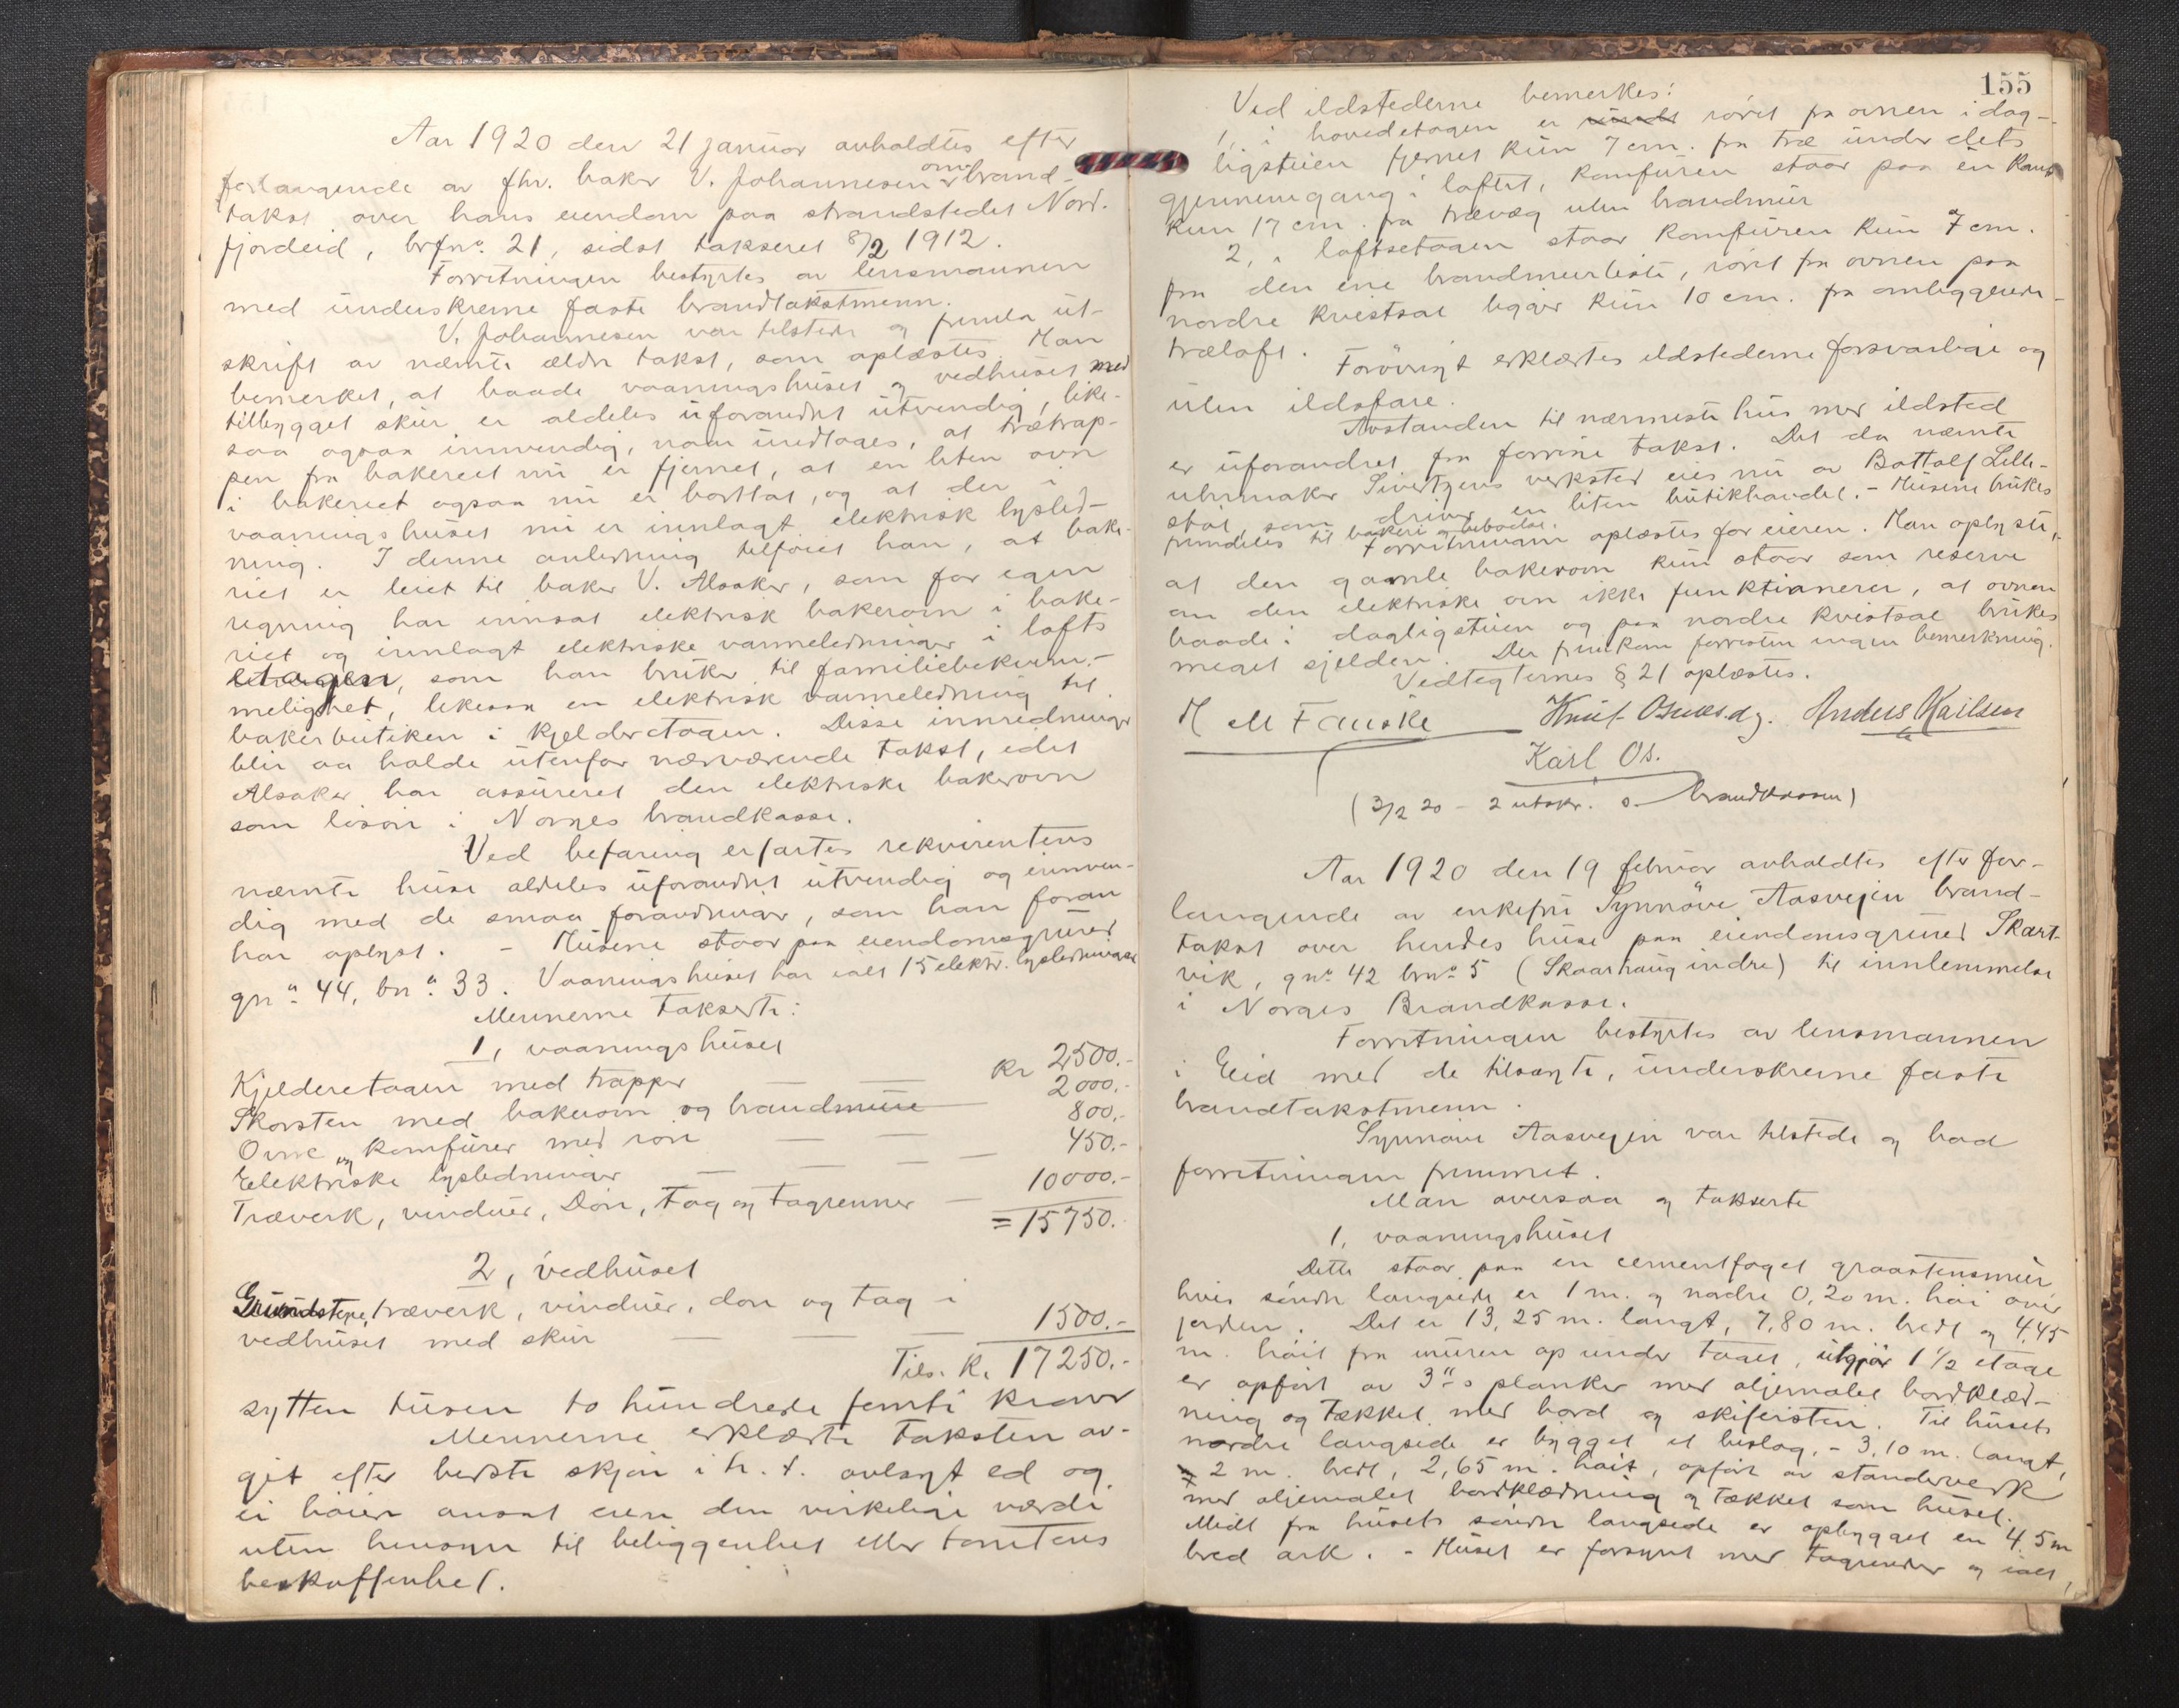 Aar 1920 den 21 januar avholdtes efter
forlangende av fhv. baker V. Johannesen om brand-
takst over hans eiendom paa strandstedet Nord-
fjordeid, brfno. 21, sidst takseret 8/2 1912.
Forretningen bestyrtes av lensmannen
med underskrevne faste brandtakstmenn.
V. Johannesen var tilstede og fremla ut-
skrift av nævnte ældre takst, som oplæstes. Han
bemerket, at baade vaaningshuset og vedhuset med
tilbygget skur er aldeles uforandret utvendig, like-
saa ogsaa innvendig, naar undtages, at trætrap-
pen fra bakeriet nu er fjernet, at en liten ovn
i bakeriet ogsaa nu er borttat, og at der i
vaaningshuset nu er innlagt elektrisk lysled-
ning. I denne anledning tilføiet han, at bake-
riet er leiet til baker V. Alsaker, som for egen
regning har innsat elektrisk bakerovn i bake-
riet og innlagt elektriske varmeledninger i lofts
etagen, som han bruker til familiebekvem-
melighet, likesaa en elektrisk varmeledning til
bakerbutiken i kjelderetagen. Disse innredninger
blir aa holde utenfor nærværende takst, idet
Alsaker har assureret den elektriske bakerovn
som løsøre i Norges brandkasse.
Ved befaring erfartes rekvirentens
nævnte huse aldeles uforandret utvendig og innven-
dig med de smaa forandringer, som han foran
har oplyst. - Husene staar paa eiendomsgrund
gno. 44, bno. 33. Vaaningshuset har ialt 15 elektr. lysledninger
Mennerne takserte:
1, vaaningshuset
Kjelderetagen med trapper — — kr 2500.-
Skorsten med bakerovn og brandmure — 2000.-
Ovne og komfurer med rør — — 800.-
Elektriske lysledninger — — — — 450.-
Træverk, vinduer, Døre, tag og tagrenner — 10000.-
= 15750.-
2, vedhuset
Grundstene, træverk, vinduer, dør og tag i
vedhuset med skur — — — 1500.-
Tils. Kr. 17250.-
sytten tusen to hundrede femti kroner
Mennerne erklærte taksten av-
git efter bedste skjøn i h. t. avlagt ed og
ei høiere ansat enn den virkelige værdi
uten hensyn til beliggenhet eller tomtens
beskaffenhet.
155
Ved ildstederne bemerkes:
1, i hovedetagen er røret fra ovnen i dag-
ligstuen fjernet kun 7 cm. fra træ under dets
gjennemgang i loftet, komfuren staar paa en kant
kun 17 cm. fra trævæg uten brandmur
2, i loftsetagen staar komfuren kun 7 cm.
fra den ene brandmurliste, røret fra ovnen paa
nordre kvistsal ligger kun 10 cm. fra omliggende
træloft.
Forøvrigt erklærtes ildstederne forsvarlige og
uten ildsfare.
Avstanden til nærmeste hus med ildsted
er uforandret fra forrige takst. Det da nævnte
uhrmaker Sivertzens verksted eies nu av Bottolf Lille-
støl, som driver en liten butikhandel. - Husene brukes
fremdeles til bakeri og beboelse.
Forretningen oplæstes for eieren. Han oplyste,
at den gamle bakerovn kun staar som reserve
om den elektriske ovn ikke funktionerer, at ovnen
baade i dagligstuen og paa nordre kvistsal brukes
meget sjelden. Der fremkom forresten ingen bemerkning.
Vedtegternes § 21 oplæstes.
H M Fauske Knut Anders Karlsen
Karl Os.
(3/2 20 - 2 utskr. s. brandkassen)
Aar 1920 den 19 februar avholdtes efter for-
langende av enkefru Synnøve Aasvejen brand-
takst over hendes huse paa eiendomsgrund Skart-
vik, gno. 42 bno. 5 (Skaarhaug indre) til innlemmelse
i Norges Brandkasse.
Forretningen bestyrtes av lensmannen
i Eid med de tilsagte, underskrevne faste
brandtakstmenn.
Synnøve Aasvejen var tilstede og bad
forretningen fremmet.
Man oversaa og takserte
1, vaaningshuset
Dette staar paa en cementfuget graastensmur,
hvis søndre langside er 1 m. og nordre 0,20 m. høi over
jorden. Det er 13,25 m. langt, 7,80 m. bredt og 4,45
m. høit fra muren op under taget, utgjør 1 1/2 etage
er opført av 3"s planker med oljemalet bordklæd-
ning og tækket med bord og skifersten. Til husets
nordre langside er bygget et bislag, - 3,10 m. langt,
2 m. bredt, 2,65 m. høit, opført av standerverk
med oljemalet bordklædning og tækket som huset.
Midt fra husets søndre langside er opbygget en 4,5 m
bred ark. - Huset er forsynt med tagrender og ialt,